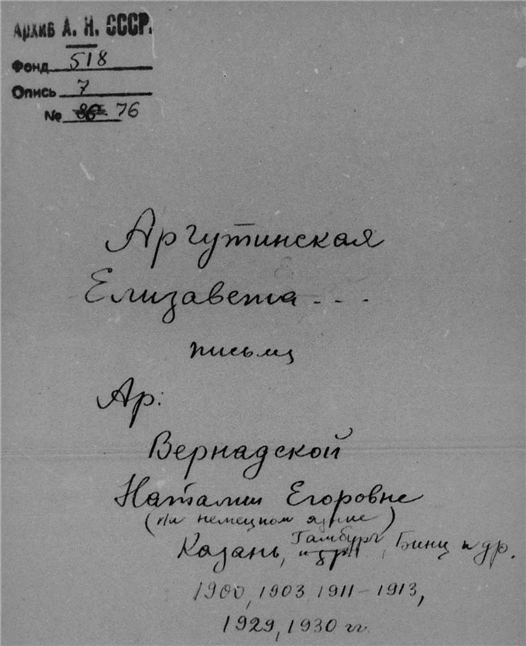 Архив А. Н. СССР.
Фонд 518
Опись 7
№ 86 76
Аргутинская
Елизавета - - -
письма
Ар:
Вернадской
Наталии Егоровне
(на немецком языке)
Казань, Гамбург, Бинц и др.
1900, 1903 1911-1913,
1929, 1930 гг.